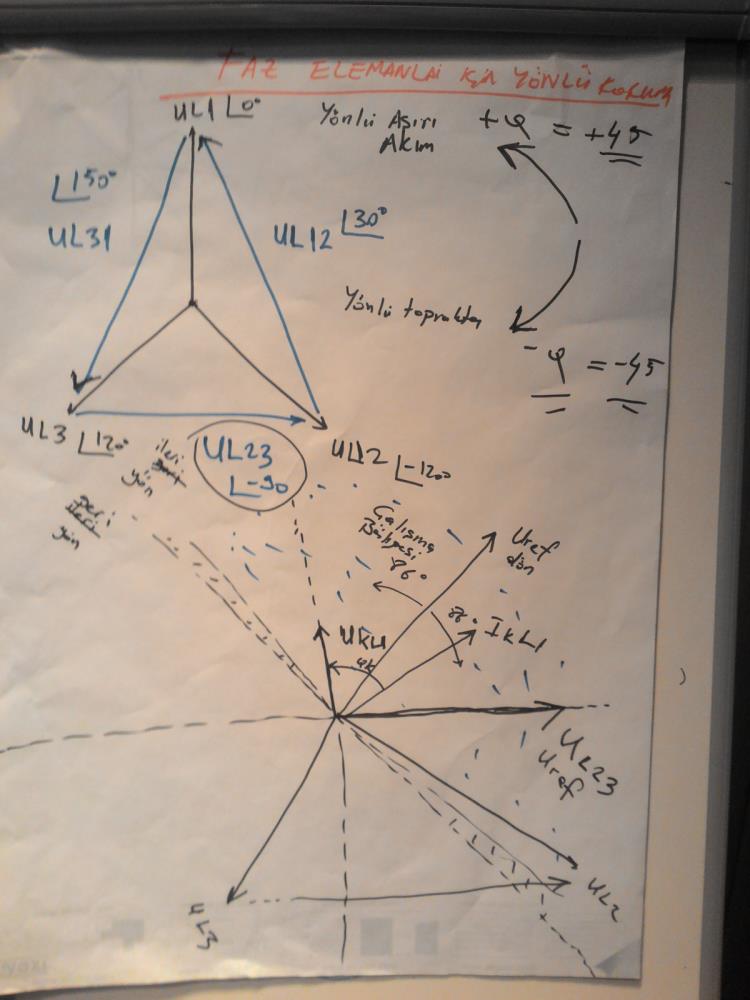 FAZ ELEMANLAI İÇİN YÖNLÜ KORUMA
UL1 ∟0°
Yönlü Aşırı
Akım
+φ = +45
∟150°
UL31
UL12 ∟30°
Yönlü toprakta
-φ = -45
UL3 ∟120°
UL23
∟-90
UL2 ∟-120°
ileri
yön
geri
ileri
yön
Çalışma
Bölgesi
86°
Uref
dön
UKL1
φk
IKL1
UL23
Uref
UL3
UL2